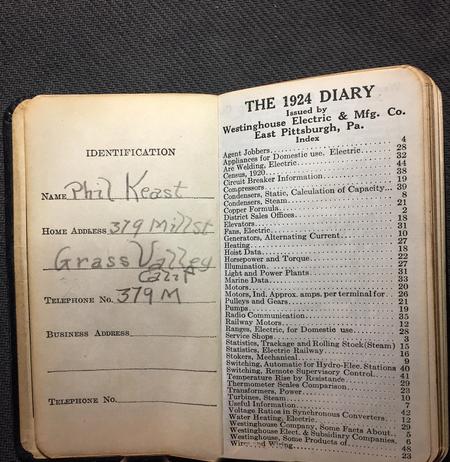 IDENTIFICATION
NAME Phil Keast
HOME ADDRESS 379 Mill St
Grass Valley
Calif
TELEPHONE NO. 379 M
BUSINESS ADDRESS
TELEPHONE NO.
THE 1924 DIARY
Issued by
Westinghouse Electric & Mfg. Co.
East Pittsburgh, Pa.
Index
Agent Jobbers 4
Appliances for Domestic use, Electric 28
Arc Welding, Electric 32
Census, 1920 44
Circuit Breaker Information 38
Compressors 19
Condensers, Static, Calculation of Capacity 39
Condensers, Steam 8
Copper Formula 21
District Sales Offices 2
Elevators 18
Fans, Electric 31
Generators, Alternating Current 10
Heating 27
Hoist Data 18
Horsepower and Torque 22
Illumination 27
Light and Power Plants 31
Marine Data 33
Motors 20
Motors, Ind. Approx. amps. per terminal for 26
Pulleys and Gears 21
Pumps 19
Radio Communication 35
Railway Motors 12
Ranges, Electric, for Domestic use 28
Service Shops 3
Statistics, Trackage and Rolling Stock (Steam) 15
Statistics, Electric Railway 16
Stokers, Mechanical 9
Switching, Automatic for Hydro-Elec. Stations 40
Switching, Remote Supervisory Control 41
Temperature Rise by Resistance 29
Thermometer Scales Comparison 23
Transformers, Power 10
Turbines, Steam 7
Useful Information 42
Voltage Ratios in Synchronous Converters 12
Water Heating, Electric 29
Westinghouse Company, Some Facts About 5
Westinghouse Elect. & Subsidiary Companies 6
Westinghouse, Some Products of 48
Wire and Wiring 23